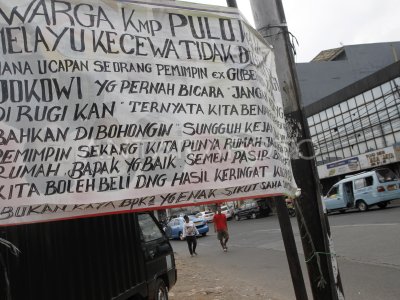 WARGA KMP PULO
MELAYU KECEWA TIDAK
MANA UCAPAN SEORANG PEMIMPIN EX GUBE
JOKOWI YG PERNAH BICARA "JANG
DIRUGIKAN" TERNYATA KITA BEN
BAHKAN DI BOHONGIN SUNGGUH KEJA
PEMIMPIN SEKANG KITA PUNYA RUMAH
RUMAH BAPAK YG BAIK. SEMEN PASIR B
KITA BOLEH BELI DNG HASIL KERINGAT
BUKAN KAYA BPK2 YG ENAK SIKUT SANA